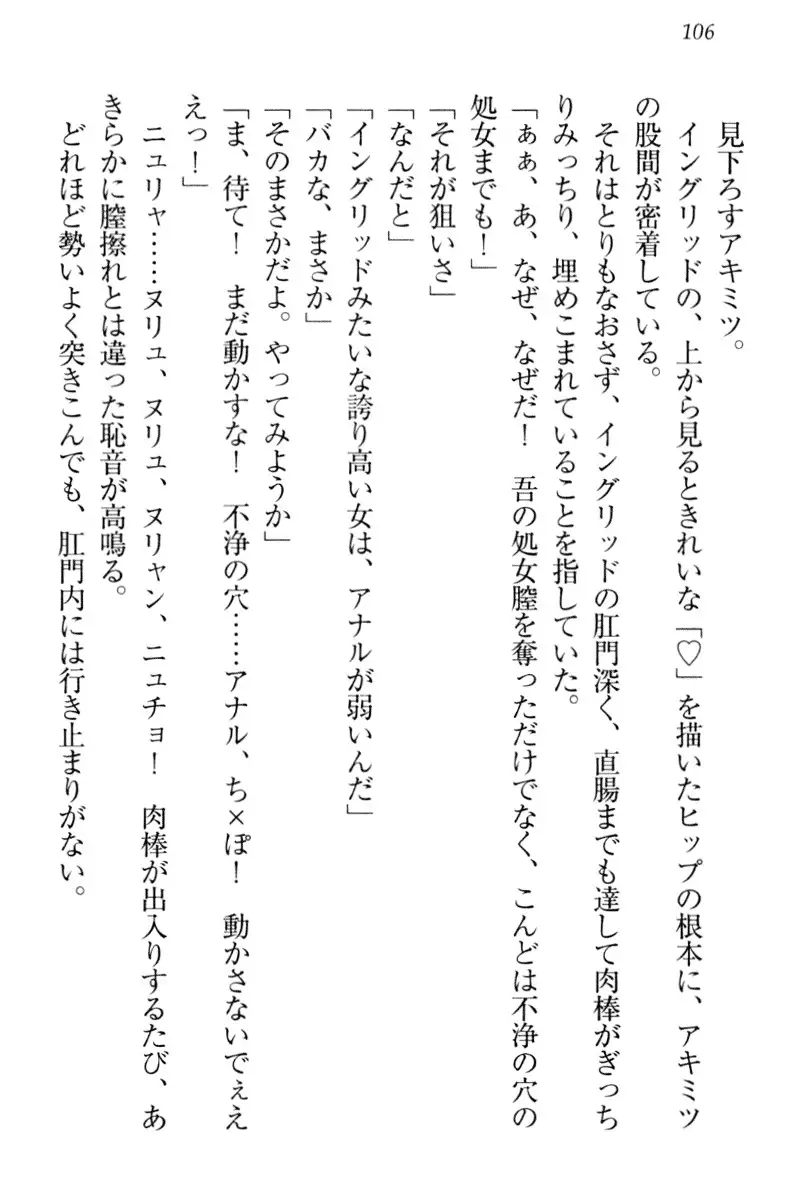 106
見下ろすアキミツ。
　イングリッドの、上から見るときれいな「♡」を描いたヒップの根本に、アキミツ
の股間が密着している。
　それはとりもなおさず、イングリッドの肛門深く、直腸までも達して肉棒がぎっち
りみっちり、埋めこまれていることを指していた。
「ぁぁ、あ、なぜ、なぜだ！　吾の処女膣を奪っただけでなく、こんどは不浄の穴の
処女までも！」
「それが狙いさ」
「なんだと」
「イングリッドみたいな誇り高い女は、アナルが弱いんだ」
「バカな、まさか」
「そのまさかだよ。やってみようか」
「ま、待て！　まだ動かすな！　不浄の穴……アナル、ち×ぽ！　動かさないでぇえ
えっ！」
　ニュリャ……ヌリュ、ヌリュ、ヌリャン、ニュチョ！　肉棒が出入りするたび、あ
きらかに膣擦れとは違った恥音が高鳴る。
　どれほど勢いよく突きこんでも、肛門内には行き止まりがない。